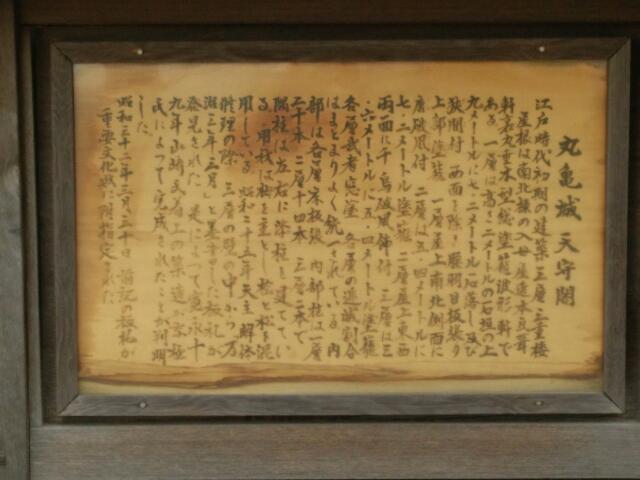 丸亀城 天守閣
江戸時代初期の建築 三層 三重楼
屋根は南北棟の入母屋造本瓦葺
軒裏丸垂木型総塗籠波形軒で
ある 一層は高さ二メートルの石垣の上
九メートルに七・二メートル 石落し及び
狭間付 西面を除き腰羽目板張り
上部塗籠 一層屋上南北側面に
唐破風付 二層は五・四メートルに
七・二メートル塗籠 二層屋上東西
両面に千鳥破風飾付 三層は三
・六メートルに五・四メートル塗籠
各層武者窓塗 各層の逓減割合
はまとまりよく統一されている 内
部は各層床板張 内部柱は一層
二十本 二層十四本 三層二本で
隅柱は左右に添柱を建ててい
る 用材は桧を主とし 松を混
用している 昭和二十五年天主解体
修理の際 三層の壁の中から万
治三年三月と墨書した板札が
発見された 是によって寛永十
九年山崎 上の築造が京極
氏によって完成されたことが判明
した
昭和三十二年三月三十日 前記の板札が
重要文化財に附指定された